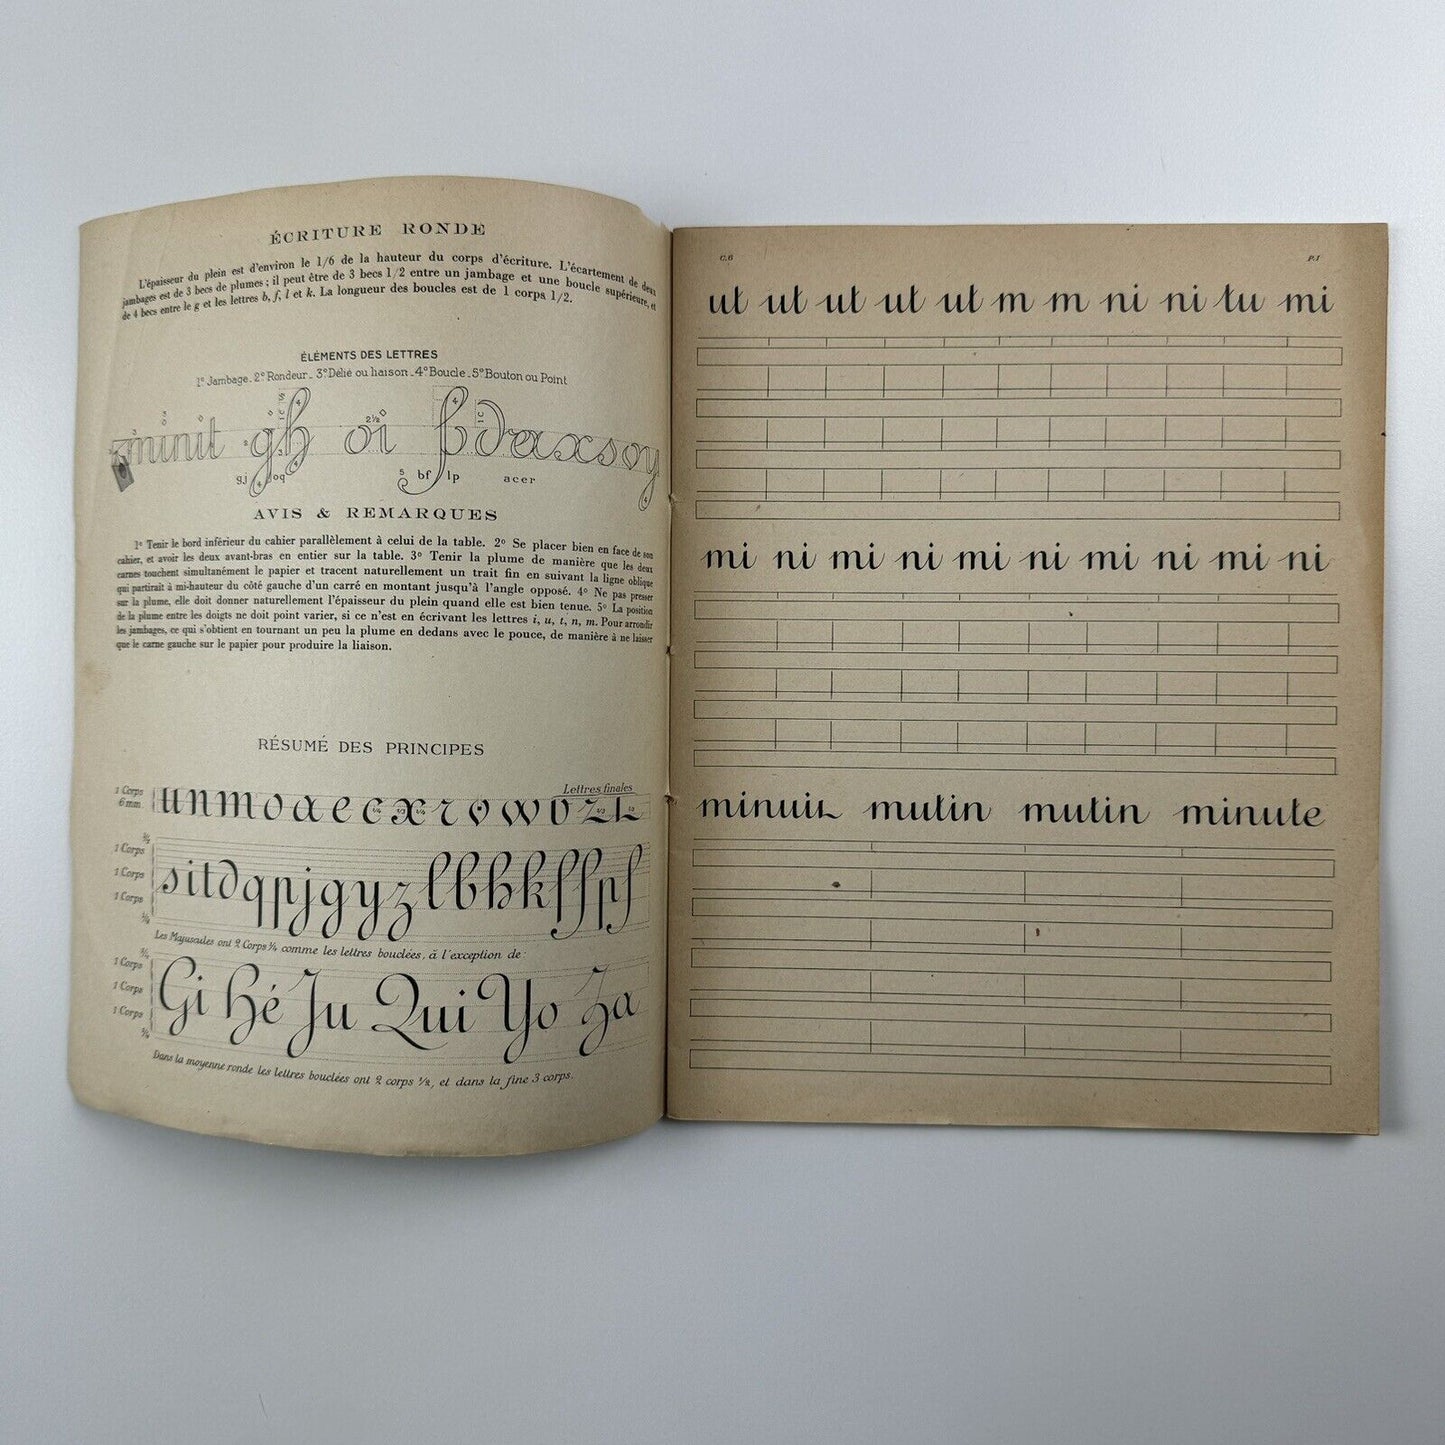 ÉCRITURE RONDE
L'épaisseur du plein est d'environ le 1/6 de la hauteur du corps d'écriture. L'écartement de deux
jambages est de 3 becs de plumes ; il peut être de 3 becs 1/2 entre un jambage et une boucle supérieure, et
de 4 becs entre le g et les lettres b, f, l et k. La longueur des boucles est de 1 corps 1/2.
ÉLÉMENTS DES LETTRES
1º Jambage - 2º Rondeur - 3º Délié ou liaison - 4º Boucle - 5º Bouton ou Point
minit gh oi fdraxsoy
gj oq bf lp acer
AVIS & REMARQUES
1º Tenir le bord inférieur du cahier parallèlement à celui de la table. 2º Se placer bien en face de son
cahier, et avoir les deux avant-bras en entier sur la table. 3º Tenir la plume de manière que les deux
carnes touchent simultanément le papier et tracent naturellement un trait fin en suivant la ligne oblique
qui partirait à mi-hauteur du côté gauche d'un carré en montant jusqu'à l'angle opposé. 4º Ne pas presser
sur la plume, elle doit donner naturellement l'épaisseur du plein quand elle est bien tenue. 5º La position
de la plume entre les doigts ne doit point varier, si ce n'est en écrivant les lettres i, u, t, n, m. Pour arrondir
les jambages, ce qui s'obtient en tournant un peu la plume en dedans avec le pouce, de manière à ne laisser
que le carne gauche sur le papier pour produire la liaison.
RÉSUMÉ DES PRINCIPES
Lettres finales
1 Corps
6 mm
unmoaecxrvwozt
3/4
1 Corps
1 Corps
1 Corps
3/4
sitdqpjgyzlbhkffpf
Les Majuscules ont 2 Corps 3/4 comme les lettres bouclées, à l'exception de :
3/4
1 Corps
1 Corps
1 Corps
3/4
Gi Hé Ju Qui Yo Za
Dans la moyenne ronde les lettres bouclées ont 2 corps 1/2, et dans la fine 3 corps.
C.6 P.1
ut ut ut ut ut m m ni ni tu mi
mi ni mi ni mi ni mi ni mi ni
minuit mutin mutin minute